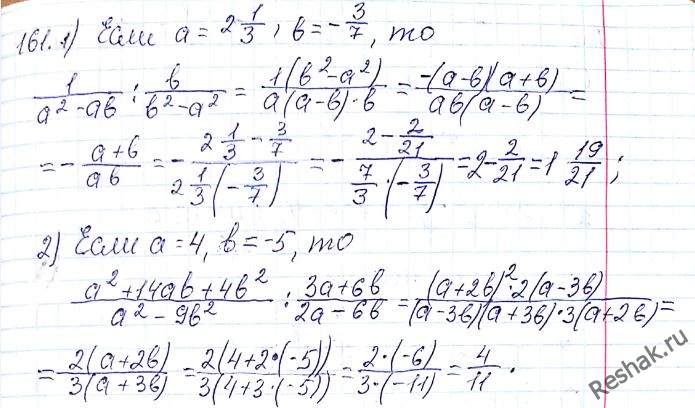 161. 1) Если a = 2 1/3, b = -3/7, то
1/(a² - ab) : b/(b² - a²) = 1(b² - a²)/(a(a - b)·b) = -(a - b)(a + b)/(ab(a - b)) =
= - (a + b)/(ab) = - (2 1/3 - 3/7)/(2 1/3 (-3/7)) = - (2 - 2/21)/(7/3 · (-3/7)) = 2 - 2/21 = 1 19/21;
2) Если a = 4, b = -5, то
(a² + 14ab + 4b²)/(a² - 9b²) : (3a + 6b)/(2a - 6b) = (a + 2b)²·2(a - 3b)/((a - 3b)(a + 3b)·3(a + 2b)) =
= 2(a + 2b)/(3(a + 3b)) = 2(4 + 2·(-5))/(3(4 + 3·(-5))) = 2·(-6)/(3·(-11)) = 4/11.
Reshak.ru